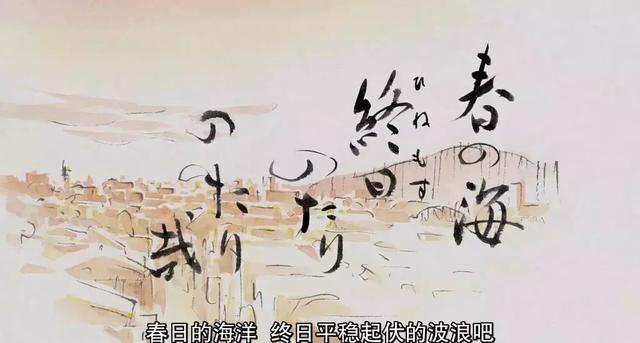 春の海
終日
ひねもす
のたり
のたり
哉
春日的海洋 终日平稳起伏的波浪吧